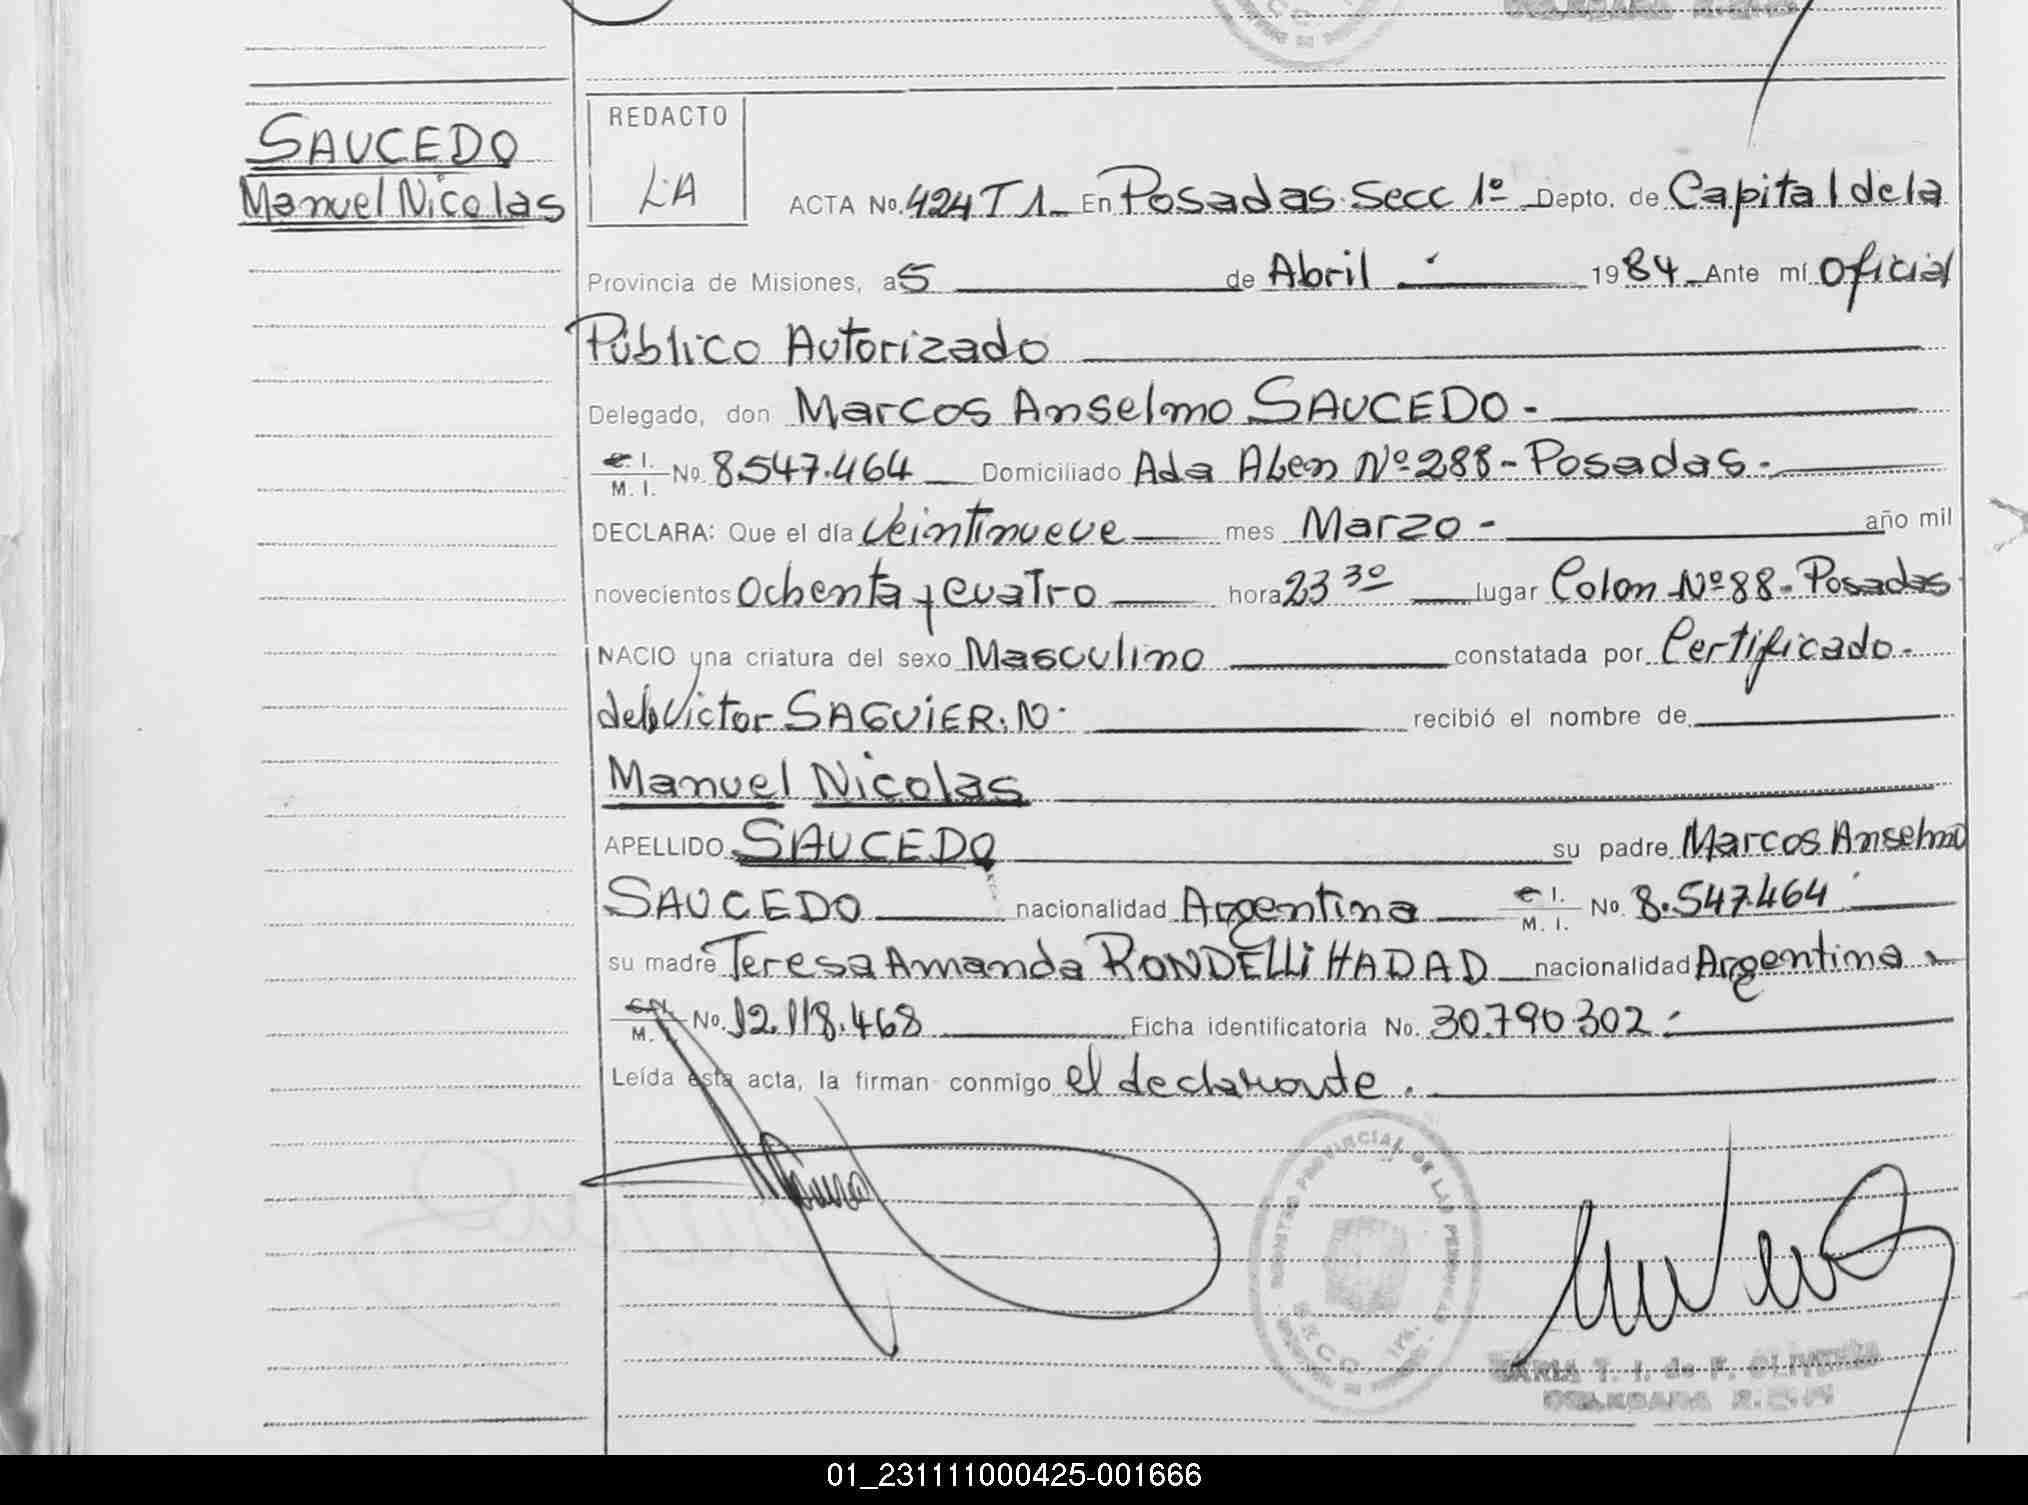 SAUCEDO
Manuel Nicolas
REDACTO
LA
ACTA No. 424 T 1 En Posadas Secc 1º Depto. de Capital de la
Provincia de Misiones, a 5 de Abril 1984 Ante mí Oficial
Público Autorizado
Delegado, don Marcos Anselmo SAUCEDO -
C. I. M. I. No. 8.547.464 Domiciliado Ada Alen Nº 288 - Posadas.-
DECLARA: Que el día Veintinueve mes Marzo - año mil
novecientos Ochenta y cuatro hora 23 30 lugar Colon Nº 88 - Posadas
NACIO una criatura del sexo Masculino constatada por Certificado
Victor SAGUIER. N. recibió el nombre de
Manuel Nicolas
APELLIDO SAUCEDO su padre Marcos Anselmo
SAUCEDO nacionalidad Argentina C. I. M. I. No. 8.547.464
su madre Teresa Amanda RONDELLI HADAD nacionalidad Argentina
M. I. No. 12.118.468 Ficha identificatoria No. 30.790.302
Leída esta acta, la firman conmigo el declarante.
MARIA T. I. de F.
DELEGADA
01_231111000425-001666